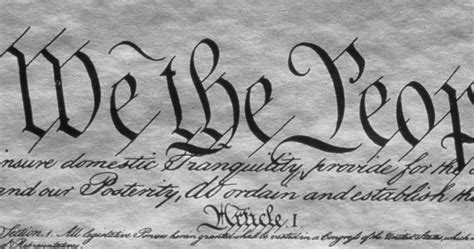 We the Peop
insure domestic Tranquility, provide for the
and our Posterity, do ordain and establish th
Article I
Section 1. All legislative Powers herein granted shall be vested in a Congress of the United States, which
of Representatives.